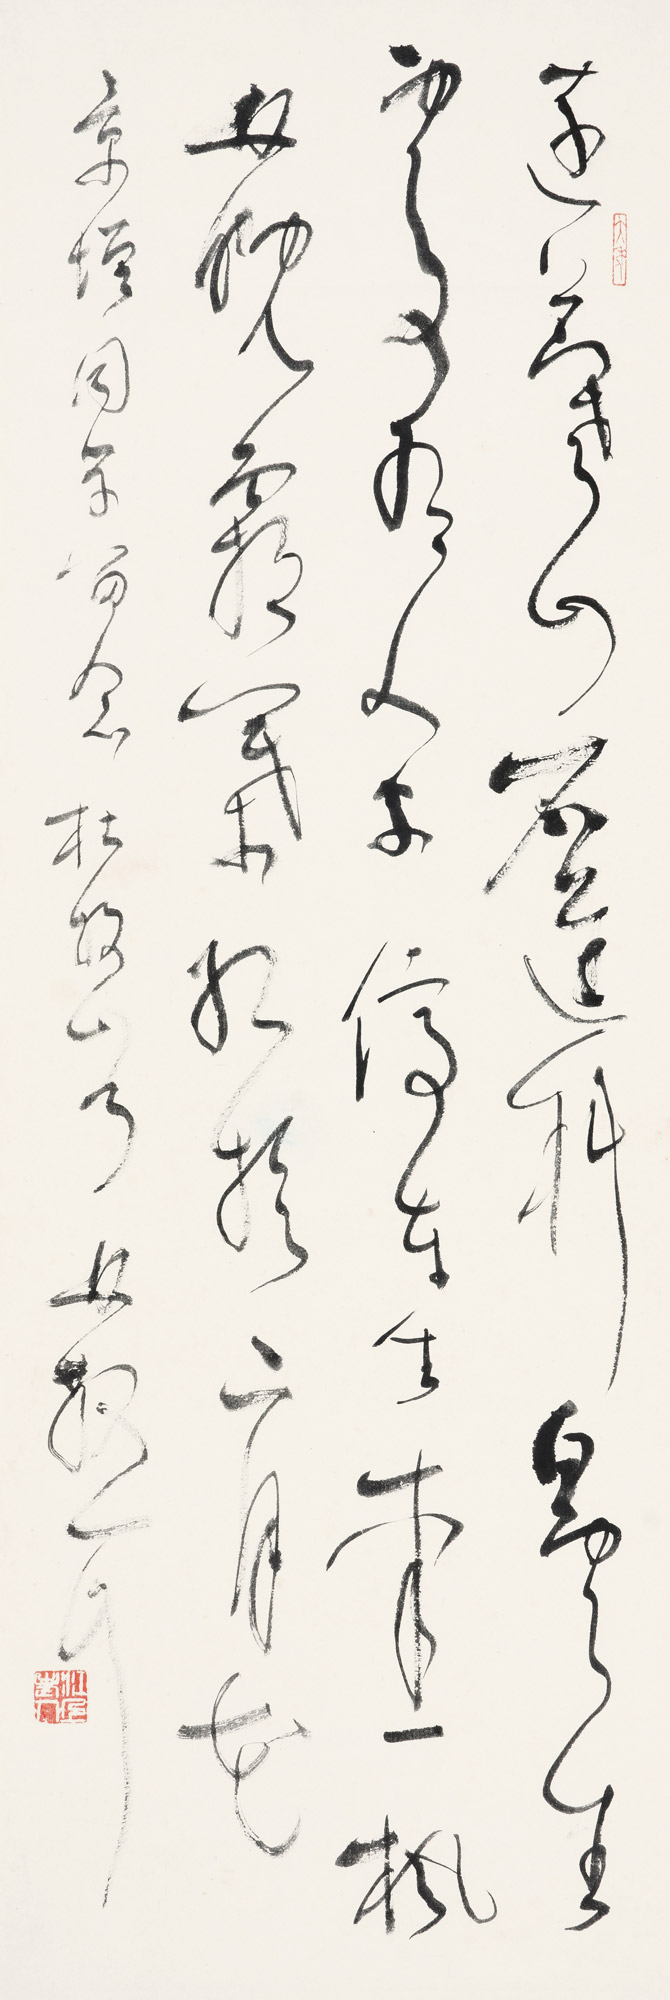 遠上寒山石徑斜白雲生
處有人家停車坐愛楓
林晚霜葉紅於二月花
京同留念杜牧山行